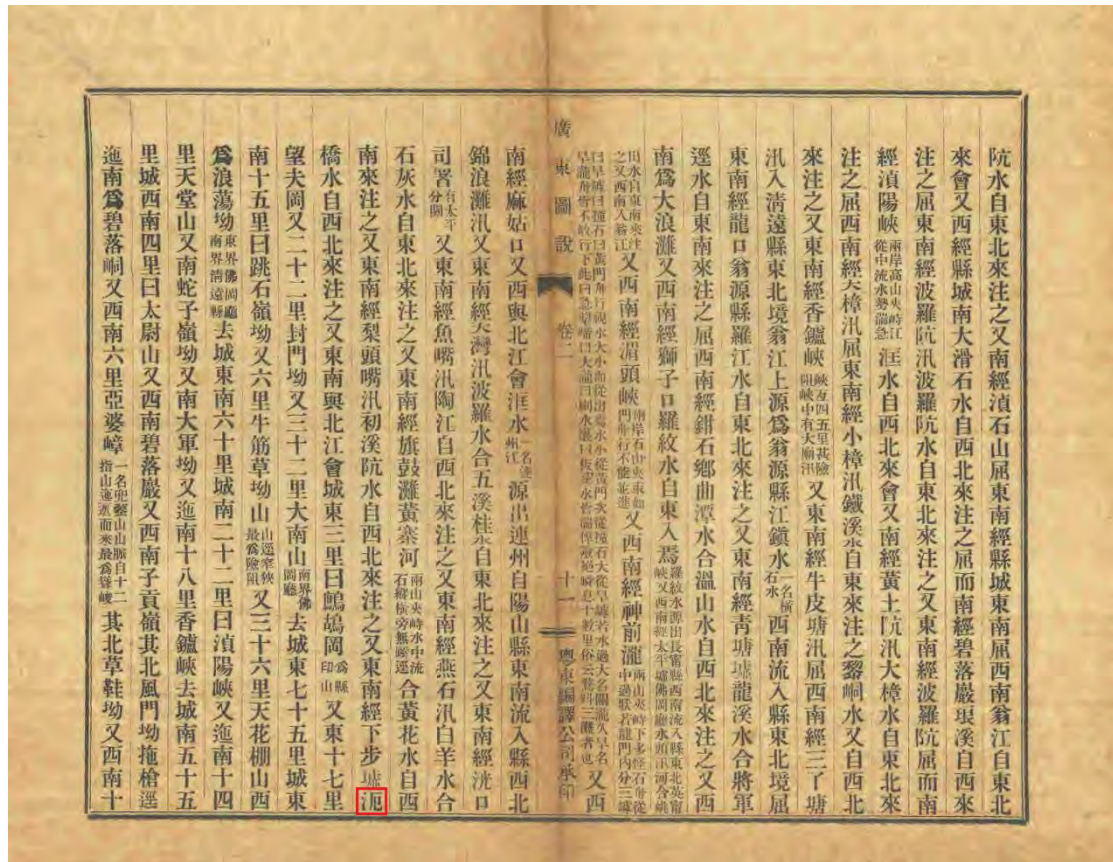 阬水自東北來注之又南經滇石山屈東南經縣城東南屈西南翁江自東北
來會又西經縣城南大滑石水自西北來注之屈而南經碧落巖琅溪自西來
注之屈東南經波羅阬汛波羅阬水自東北來注之又東南經波羅阬屈而南
經湞陽峽兩岸高山夾峙江從中流水勢湍急洭水自西北來會又南經黃土阬汛大樟水自東北來
注之屈西南經大樟汛屈東南經小樟汛鐵溪水自東來注之黎峒水又自西北
來注之又東南經香鑪峽峽亙四五里甚險阻峽中有大廟汛又東南經牛皮塘汛屈西南經三了塘
汛入清遠縣東北境翁江上源爲翁源縣江鎮水一名橫石水西南流入縣東北境屈
東南經龍口翁源縣羅江水自東北來注之又東南經青塘墟龍溪水合將軍
逕水自東南來注之屈西南經鉗石鄉曲潭水合溫山水自西北來注之又西
南爲大浪灘又西南經獅子口羅紋水自東入焉羅紋水源出長寧縣西南流入縣東北英甯峽又西南經太平墟佛岡廳水頭汛河合
田水自東南來注之又西南入翁江又西南經湄頭峽兩岸石山夾束如門舟行不能並進又西南經神前瀧兩山夾峙下多怪石舟從中過狀若龍門內分三
又西
南經麻姑口又西與北江會洭水一名連州江源出連州自陽山縣東南流入縣西北
錦浪灘汛又東南經大灣汛波羅水合五溪桂水自東北來注之又東南經洸口
司署有太平分關又東南經魚嘴汛陶江自西北來注之又東南經燕石汛白羊水合
石灰水自東北來注之又東南經旗鼓灘黃寨河兩山夾峙水中流石縱橫旁無縴逕合黃花水自西
南來注之又東南經梨頭嘴汛初溪阬水自西北來注之又東南經下步墟浥
橋水自西北來注之又東南與北江會城東三里曰鷓鴣岡爲縣印山又東十七里
望夫岡又二十二里封門坳又三十二里大南山南界佛岡廳去城東七十五里城東
南十五里曰跳石嶺坳又六里牛筋草坳山山逕窄狹最爲險阻又三十六里天花棚山西
爲浪蕩坳東界佛岡廳南界清遠縣去城東南六十里城南二十二里曰湞陽峽又迤南十四
里天堂山又南蛇子嶺坳又南大軍坳又迤南十八里香鑪峽去城南五十五
里城西南四里曰太尉山又西南碧落巖又西南子貢嶺其北風門坳拖槍逕
迤南爲碧落峒又西南六里亞婆嶂一名兜鍪山山脈自十二指山迤邐而來最爲聳峻其北草鞋坳又西南十
廣東圖說
卷二
十一
粵東編譯公司承印